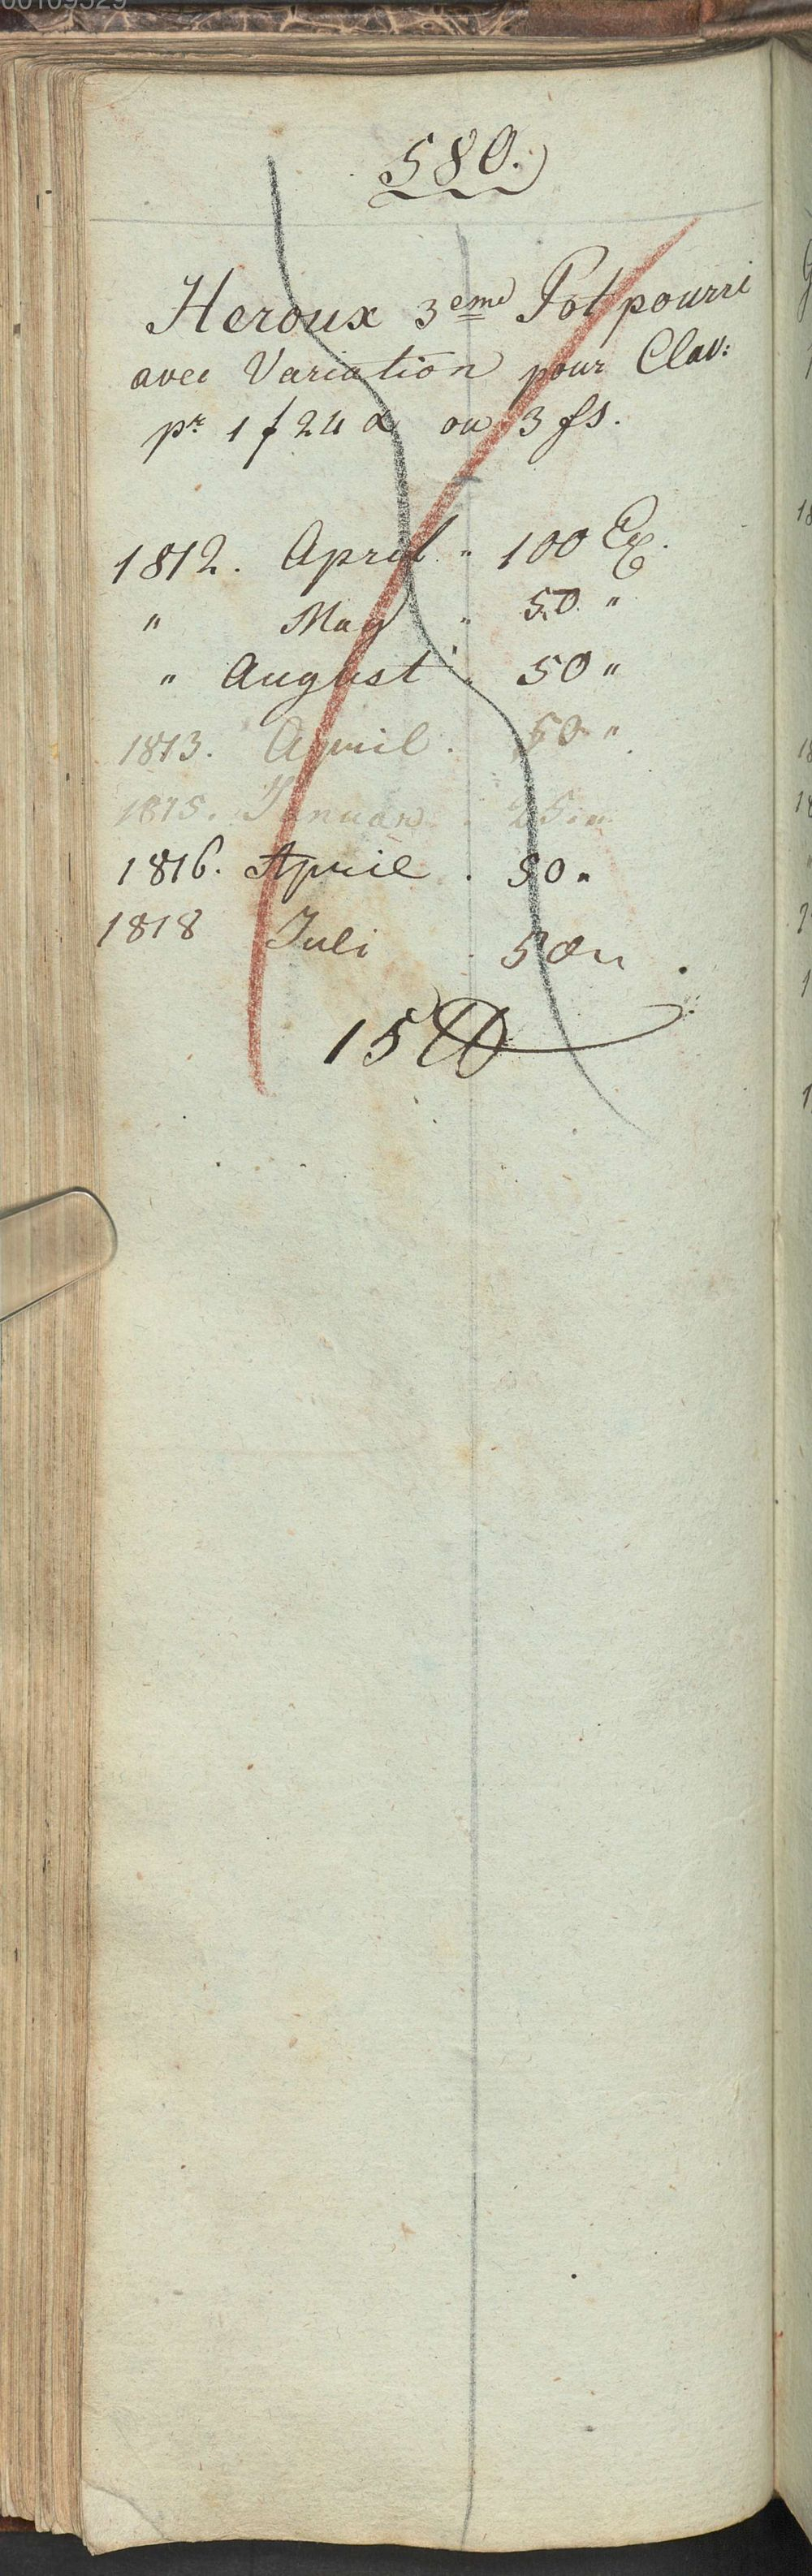 580.
Heroux 3eme Potpourri
avec Variation pour Clav:
pr 1 f 24 x ou 3 fs.
1812. April " 100 Ex.
" May " 50 "
" August " 50 "
1813. April . 50 "
1815. Januar . 25 "
1816. April . 50 "
1818 Juli . 50 "
15